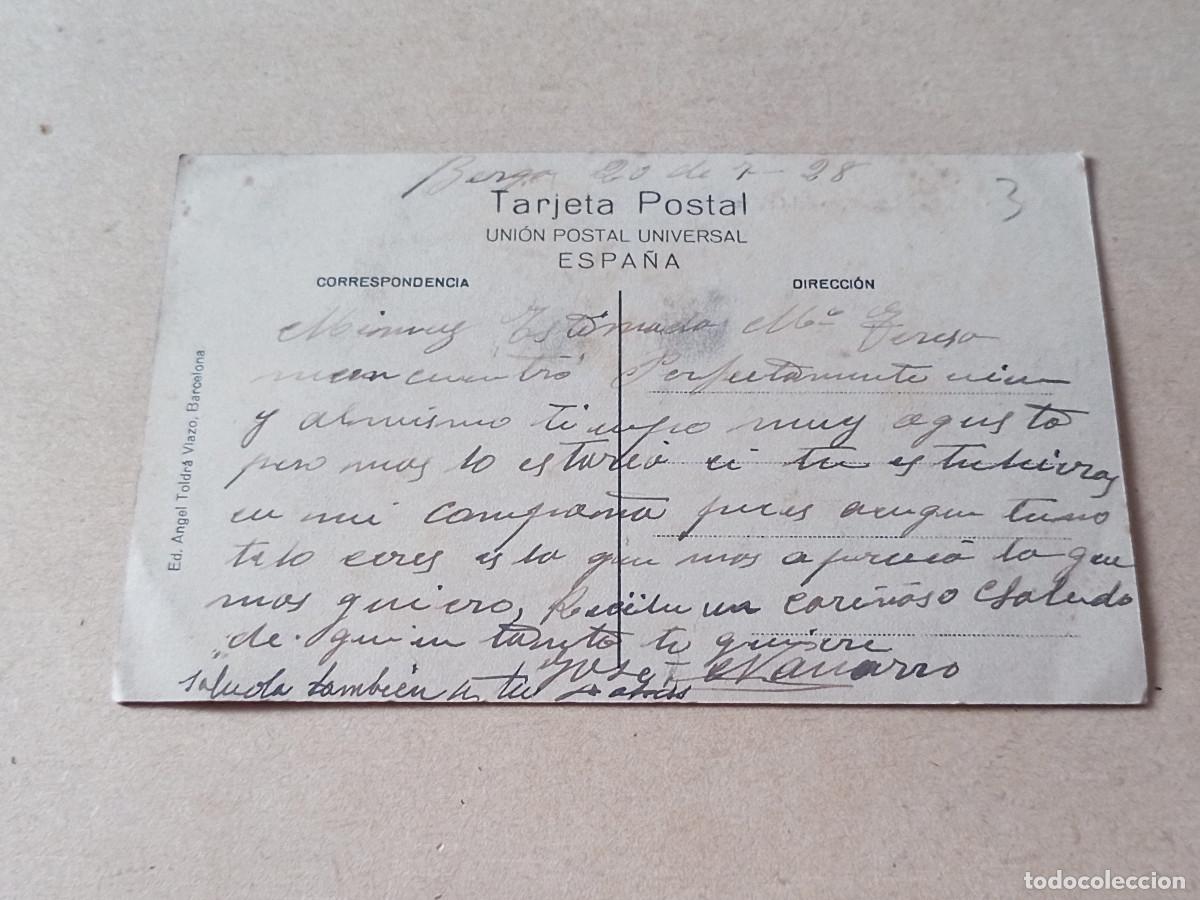 Berga 20 de 7 - 28
3
Tarjeta Postal
UNIÓN POSTAL UNIVERSAL
ESPAÑA
CORRESPONDENCIA
DIRECCIÓN
Ed. Angel Toldrá Viazo, Barcelona
Mi muy Estimada Mª Teresa
mencuentro Perfectamente vien
y almismo tiempo muy agusto
pero mas lo estaria si tu estubieras
en mi compañia pues aunque tuno
telo crees es lo que mas aprecio lo que
mas quiero, Recibe un cariñoso Saludo
de quien tanto te quiere
Jose Navarro
saluda también a tu
todocoleccion